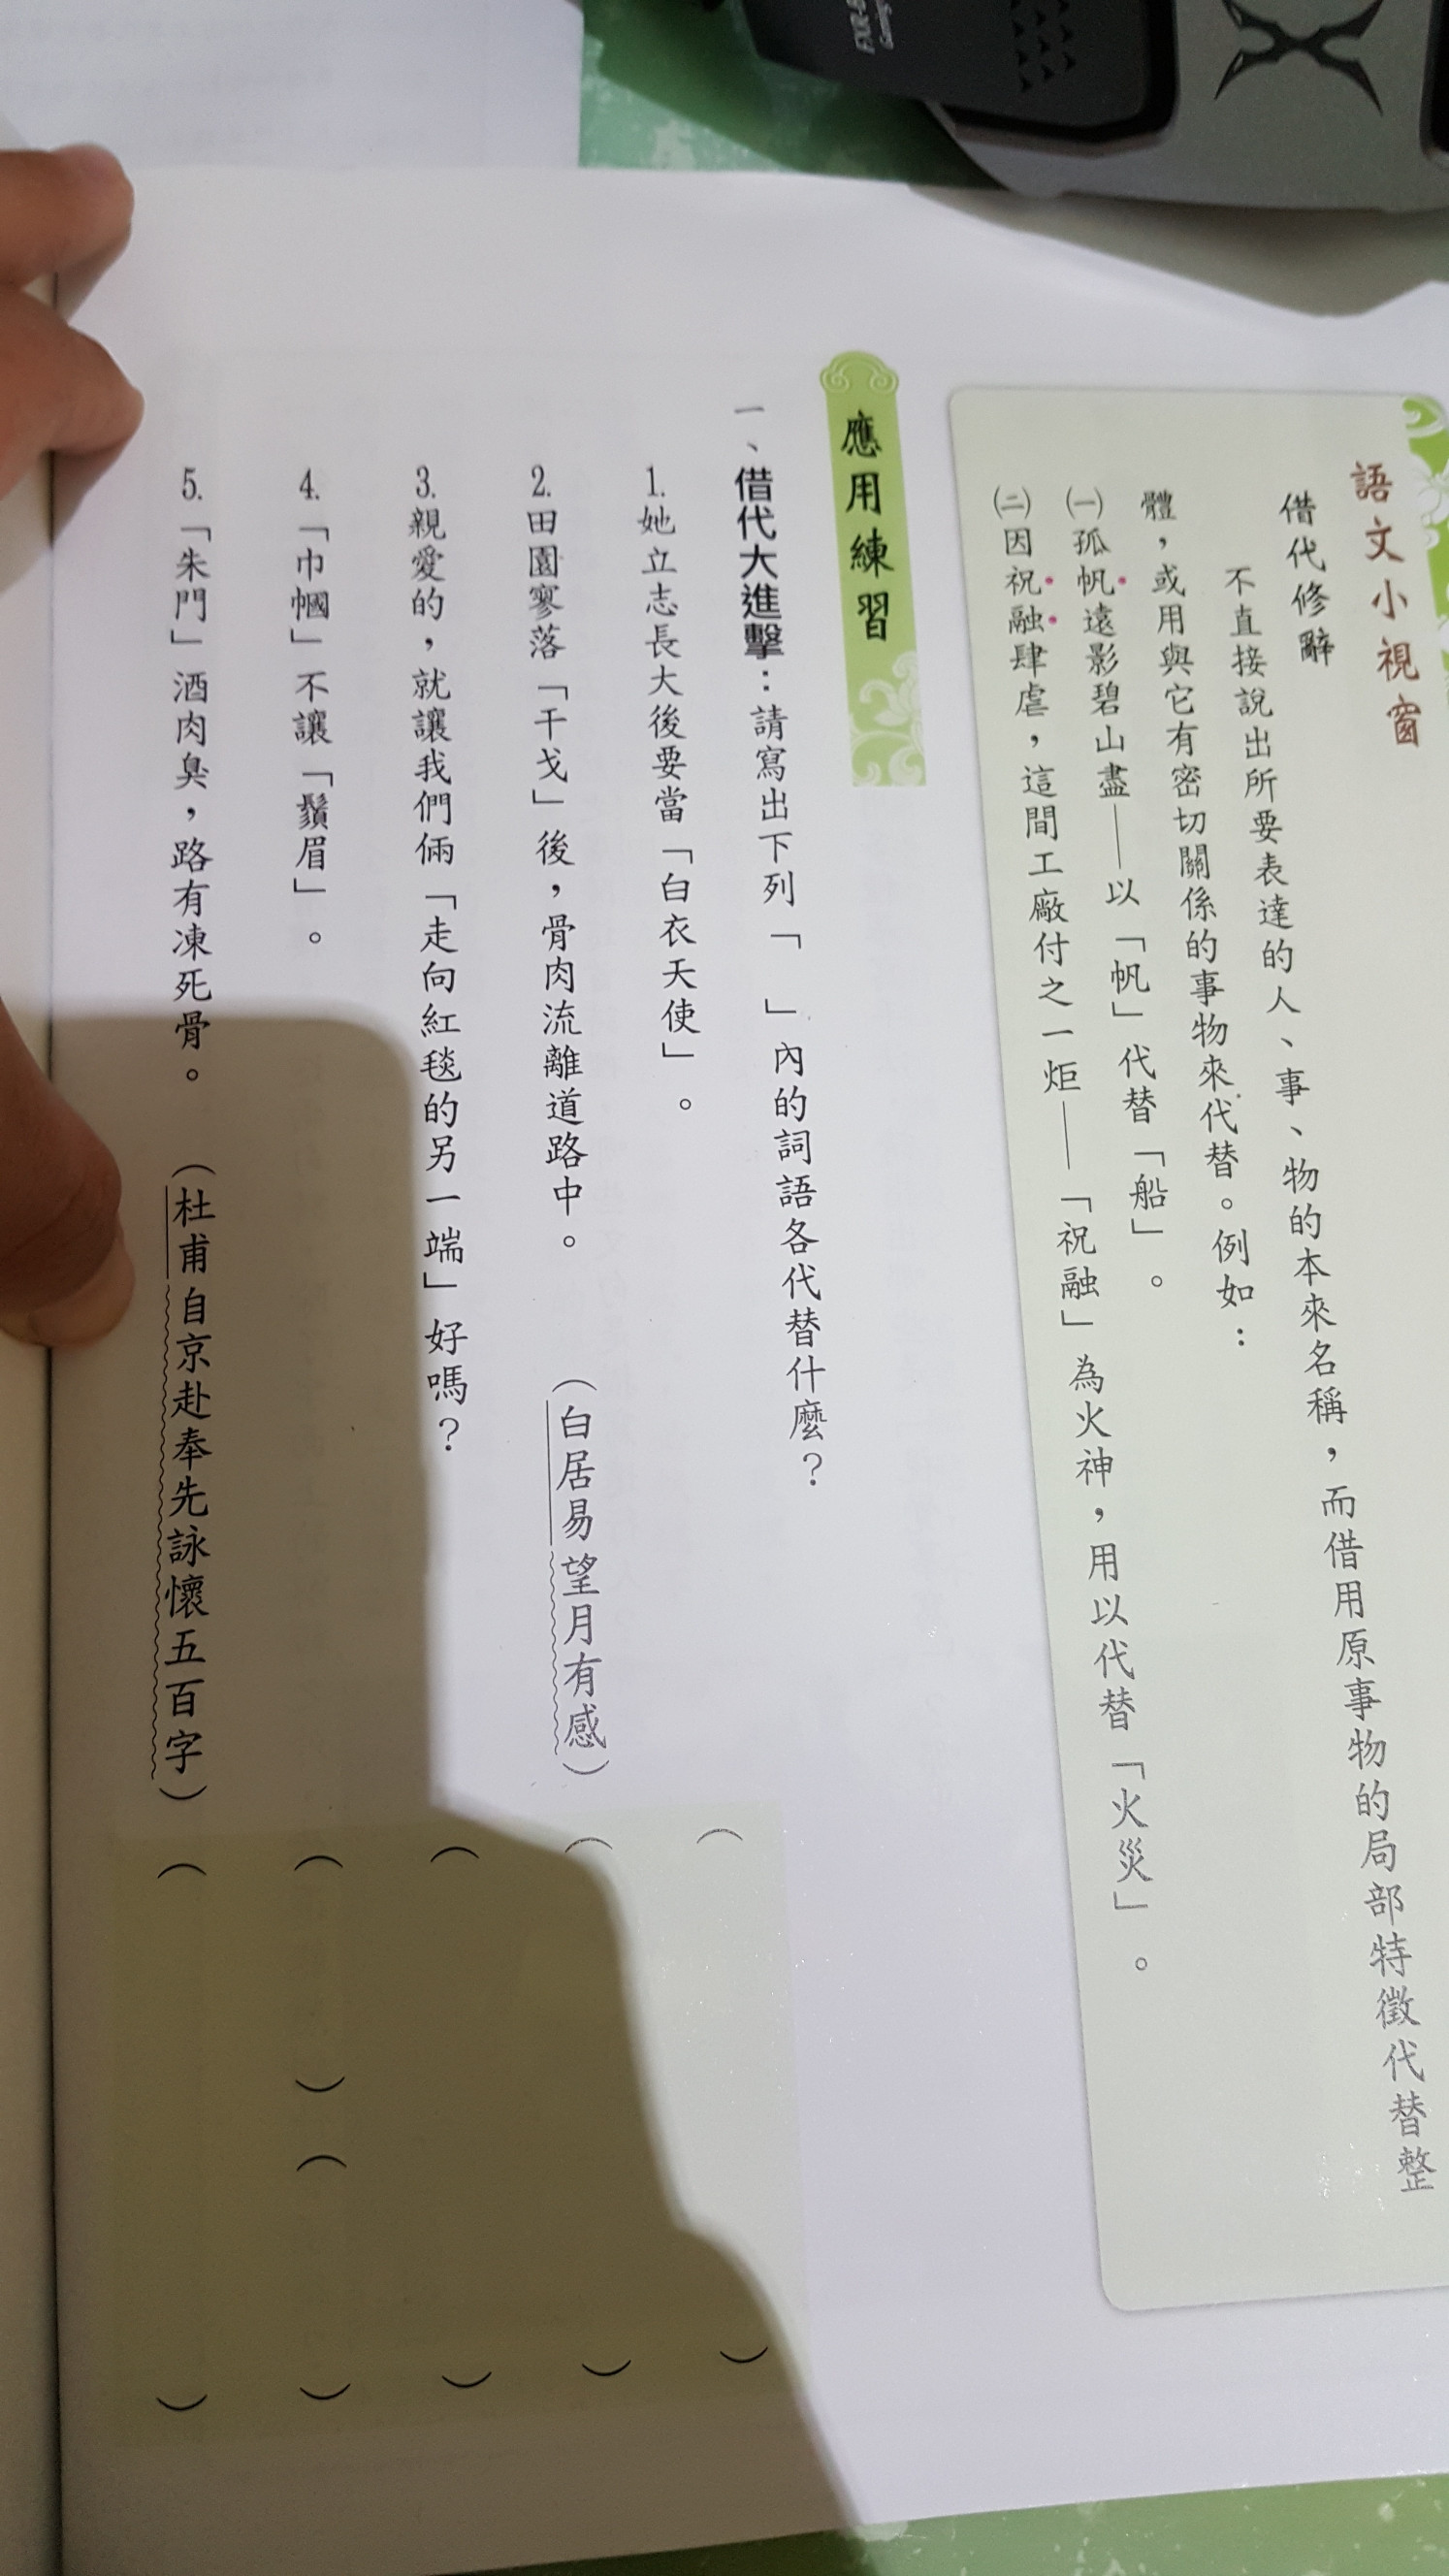 語文小視窗
借代修辭
不直接說出所要表達的人、事、物的本來名稱，而借用原事物的局部特徵代替整
體，或用與它有密切關係的事物來代替。例如：
㈠孤帆遠影碧山盡——以「帆」代替「船」。
㈡因祝融肆虐，這間工廠付之一炬——「祝融」為火神，用以代替「火災」。
應用練習
一、借代大進擊：請寫出下列「　」內的詞語各代替什麼？
1.她立志長大後要當「白衣天使」。（　）
2.田園寥落「干戈」後，骨肉流離道路中。（白居易望月有感）（　）
3.親愛的，就讓我們倆「走向紅毯的另一端」好嗎？（　）
4.「巾幗」不讓「鬚眉」。（　）（　）
5.「朱門」酒肉臭，路有凍死骨。（杜甫自京赴奉先詠懷五百字）（　）